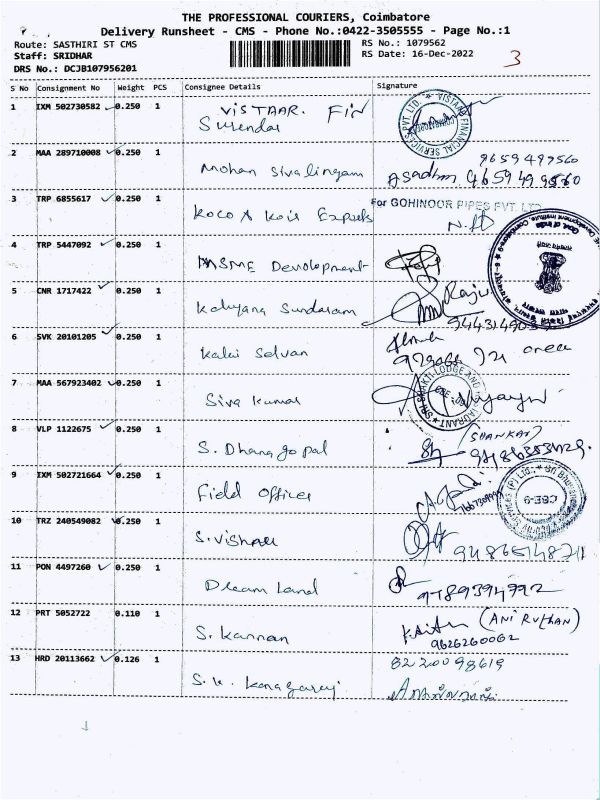 THE PROFESSIONAL COURIERS, Coimbatore
Delivery Runsheet - CMS - Phone No.:0422-3505555 - Page No.:1
Route: SASTHIRI ST CMS
Staff: SRIDHAR
DRS No.: DCJB107956201
RS No.: 1079562
RS Date: 16-Dec-2022
3
S No Consignment No Weight PCS Consignee Details Signature
1 IXM 502730582 0.250 1 VISTAAR. FIN
Surendar
2 MAA 289710008 0.250 1 Mohan Sivalingam
9659499560
9659499560
3 TRP 6855617 0.250 1
For GOHINOOR PIPES PVT. LTD
4 TRP 5447092 0.250 1 MSME Devolopment
5 CNR 1717422 0.250 1 Kalyana Sundaram
Raju
6 SVK 20101205 0.250 1 Kalai Selvan
7 MAA 567923402 0.250 1 Siva Kumar
8 VLP 1122675 0.250 1 S. Dhanagopal
(SHANKAR)
9 IXM 502721664 0.250 1 Field Officer
CBE-9
10 TRZ 240549082 0.250 1 S. Vishnu
9486514871
11 PON 4497260 0.250 1 Dream Land
9789394792
12 PRT 5052722 0.110 1 S. Kannan
(ANIRUTHAN)
9626260062
13 HRD 20113662 0.126 1 S. K. Kanagaraj
8220098619